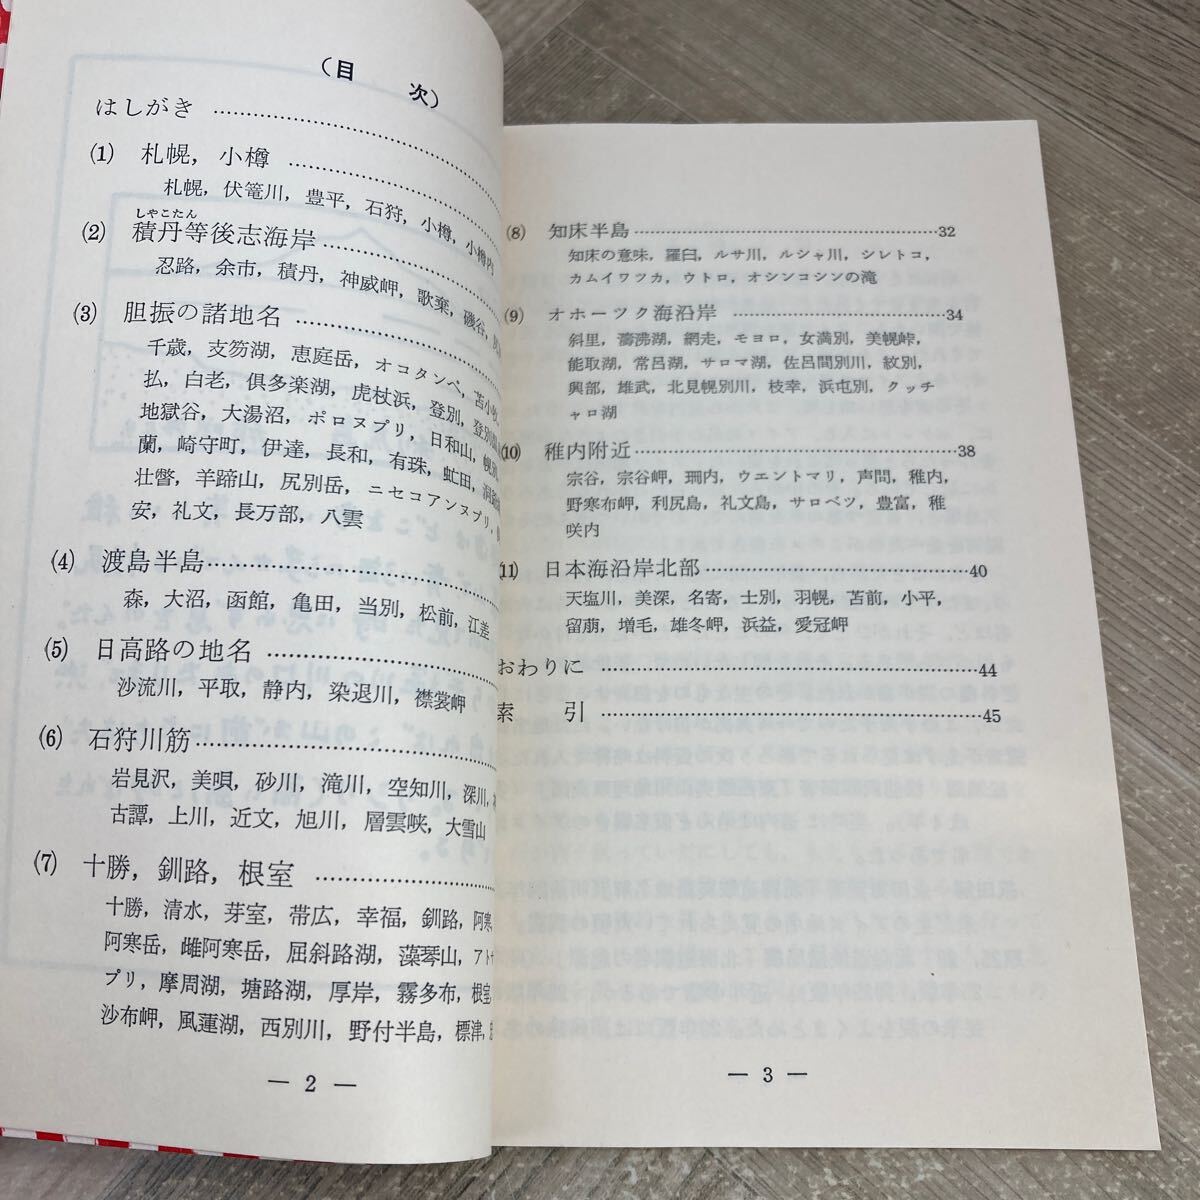 （目次）
はしがき
(1) 札幌，小樽
札幌，伏篭川，豊平，石狩，小樽，小樽内
しゃこたん
(2) 積丹等後志海岸
忍路，余市，積丹，神威岬，歌棄，磯谷，尻
(3) 胆振の諸地名
千歳，支笏湖，恵庭岳，オコタンペ，苫小牧，
払，白老，倶多楽湖，虎杖浜，登別，登別温
地獄谷，大湯沼，ポロヌプリ，日和山，幌別，
蘭，崎守町，伊達，長和，有珠，虻田，洞爺
壮瞥，羊蹄山，尻別岳，ニセコアンヌプリ，
安，礼文，長万部，八雲
(4) 渡島半島
森，大沼，函館，亀田，当別，松前，江差
(5) 日高路の地名
沙流川，平取，静内，染退川，襟裳岬
(6) 石狩川筋
岩見沢，美唄，砂川，滝川，空知川，深川，
古譚，上川，近文，旭川，層雲峡，大雪山
(7) 十勝，釧路，根室
十勝，清水，芽室，帯広，幸福，釧路，阿寒
阿寒岳，雌阿寒岳，屈斜路湖，藻琴山，アト
プリ，摩周湖，塘路湖，厚岸，霧多布，根室
沙布岬，風蓮湖，西別川，野付半島，標津，
— 2 —
(8) 知床半島 32
知床の意味，羅臼，ルサ川，ルシャ川，シレトコ，
カムイワツカ，ウトロ，オシンコシンの滝
(9) オホーツク海沿岸 34
斜里，濤沸湖，網走，モヨロ，女満別，美幌峠，
能取湖，常呂湖，サロマ湖，佐呂間別川，紋別，
興部，雄武，北見幌別川，枝幸，浜屯別，クッチ
ャロ湖
(10) 稚内附近 38
宗谷，宗谷岬，珊内，ウエントマリ，声問，稚内，
野寒布岬，利尻島，礼文島，サロベツ，豊富，稚
咲内
(11) 日本海沿岸北部 40
天塩川，美深，名寄，士別，羽幌，苫前，小平，
留萠，増毛，雄冬岬，浜益，愛冠岬
おわりに 44
索引 45
— 3 —